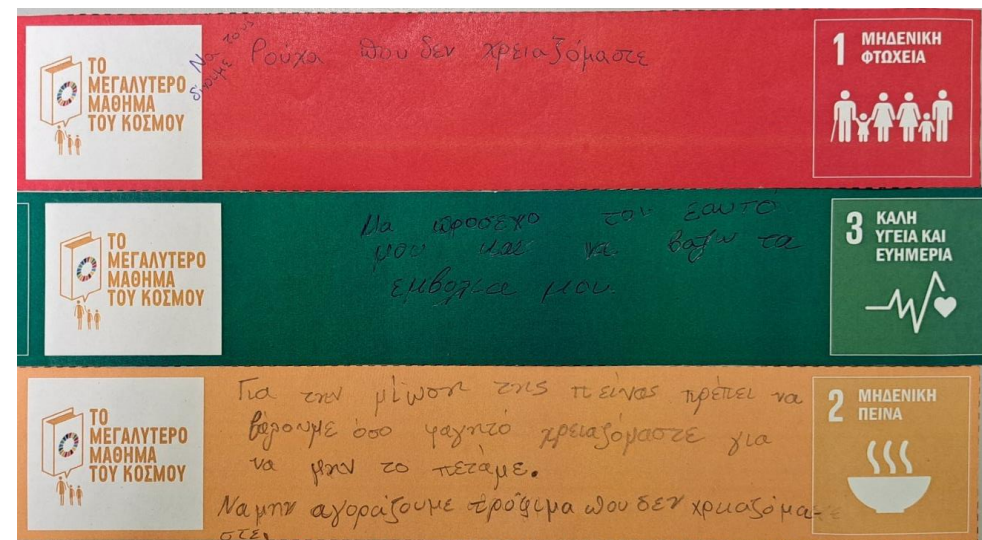 ΤΟ
ΜΕΓΑΛΥΤΕΡΟ
ΜΑΘΗΜΑ
ΤΟΥ ΚΟΣΜΟΥ
Να τους
δίνουμε
Ρούχα που δεν χρειαζόμαστε
1 ΜΗΔΕΝΙΚΗ
ΦΤΩΧΕΙΑ
ΤΟ
ΜΕΓΑΛΥΤΕΡΟ
ΜΑΘΗΜΑ
ΤΟΥ ΚΟΣΜΟΥ
Να προσεχο τον εαυτό
μου και να βαζω τα
εμβολια μου.
3 ΚΑΛΗ
ΥΓΕΙΑ ΚΑΙ
ΕΥΗΜΕΡΙΑ
ΤΟ
ΜΕΓΑΛΥΤΕΡΟ
ΜΑΘΗΜΑ
ΤΟΥ ΚΟΣΜΟΥ
Για την μίωση της πείνας πρέπει να
βάζουμε όσο φαγητό χρειαζόμαστε για
να μην το πετάμε.
Να μην αγοράζουμε τρόφιμα που δεν χριαζόμα-
στε.
2 ΜΗΔΕΝΙΚΗ
ΠΕΙΝΑ